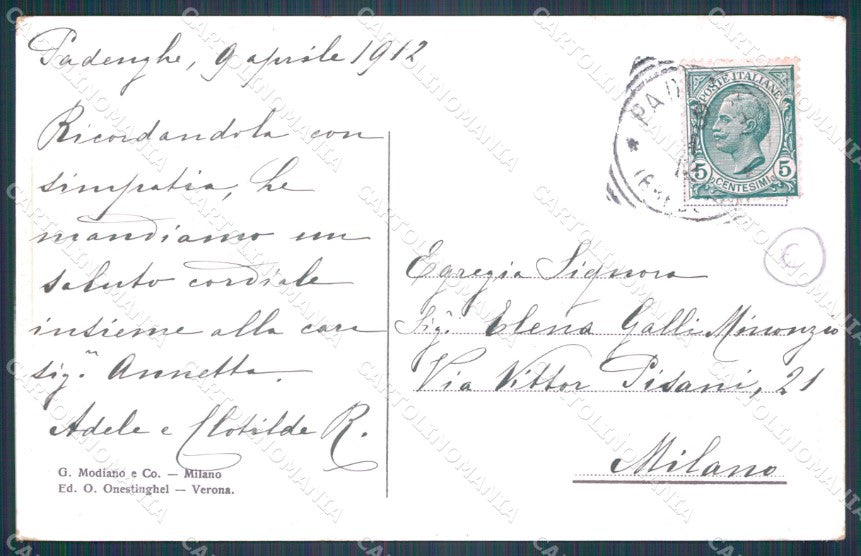 Padenghe, 9 aprile 1912
Ricordandola con
simpatia, le
mandiamo un
saluto cordiale
insieme alla cara
sigª. Annetta.
Adele e Clotilde R.
G. Modiano e Co. — Milano
Ed. O. Onestinghel — Verona.
POSTE ITALIANE
5 5
CENTESIMI
PAD
Egregia Signora
Sigª. Elena Galli Minonzio
Via Vittor Pisani, 21
Milano
CARTOLINOMANIA